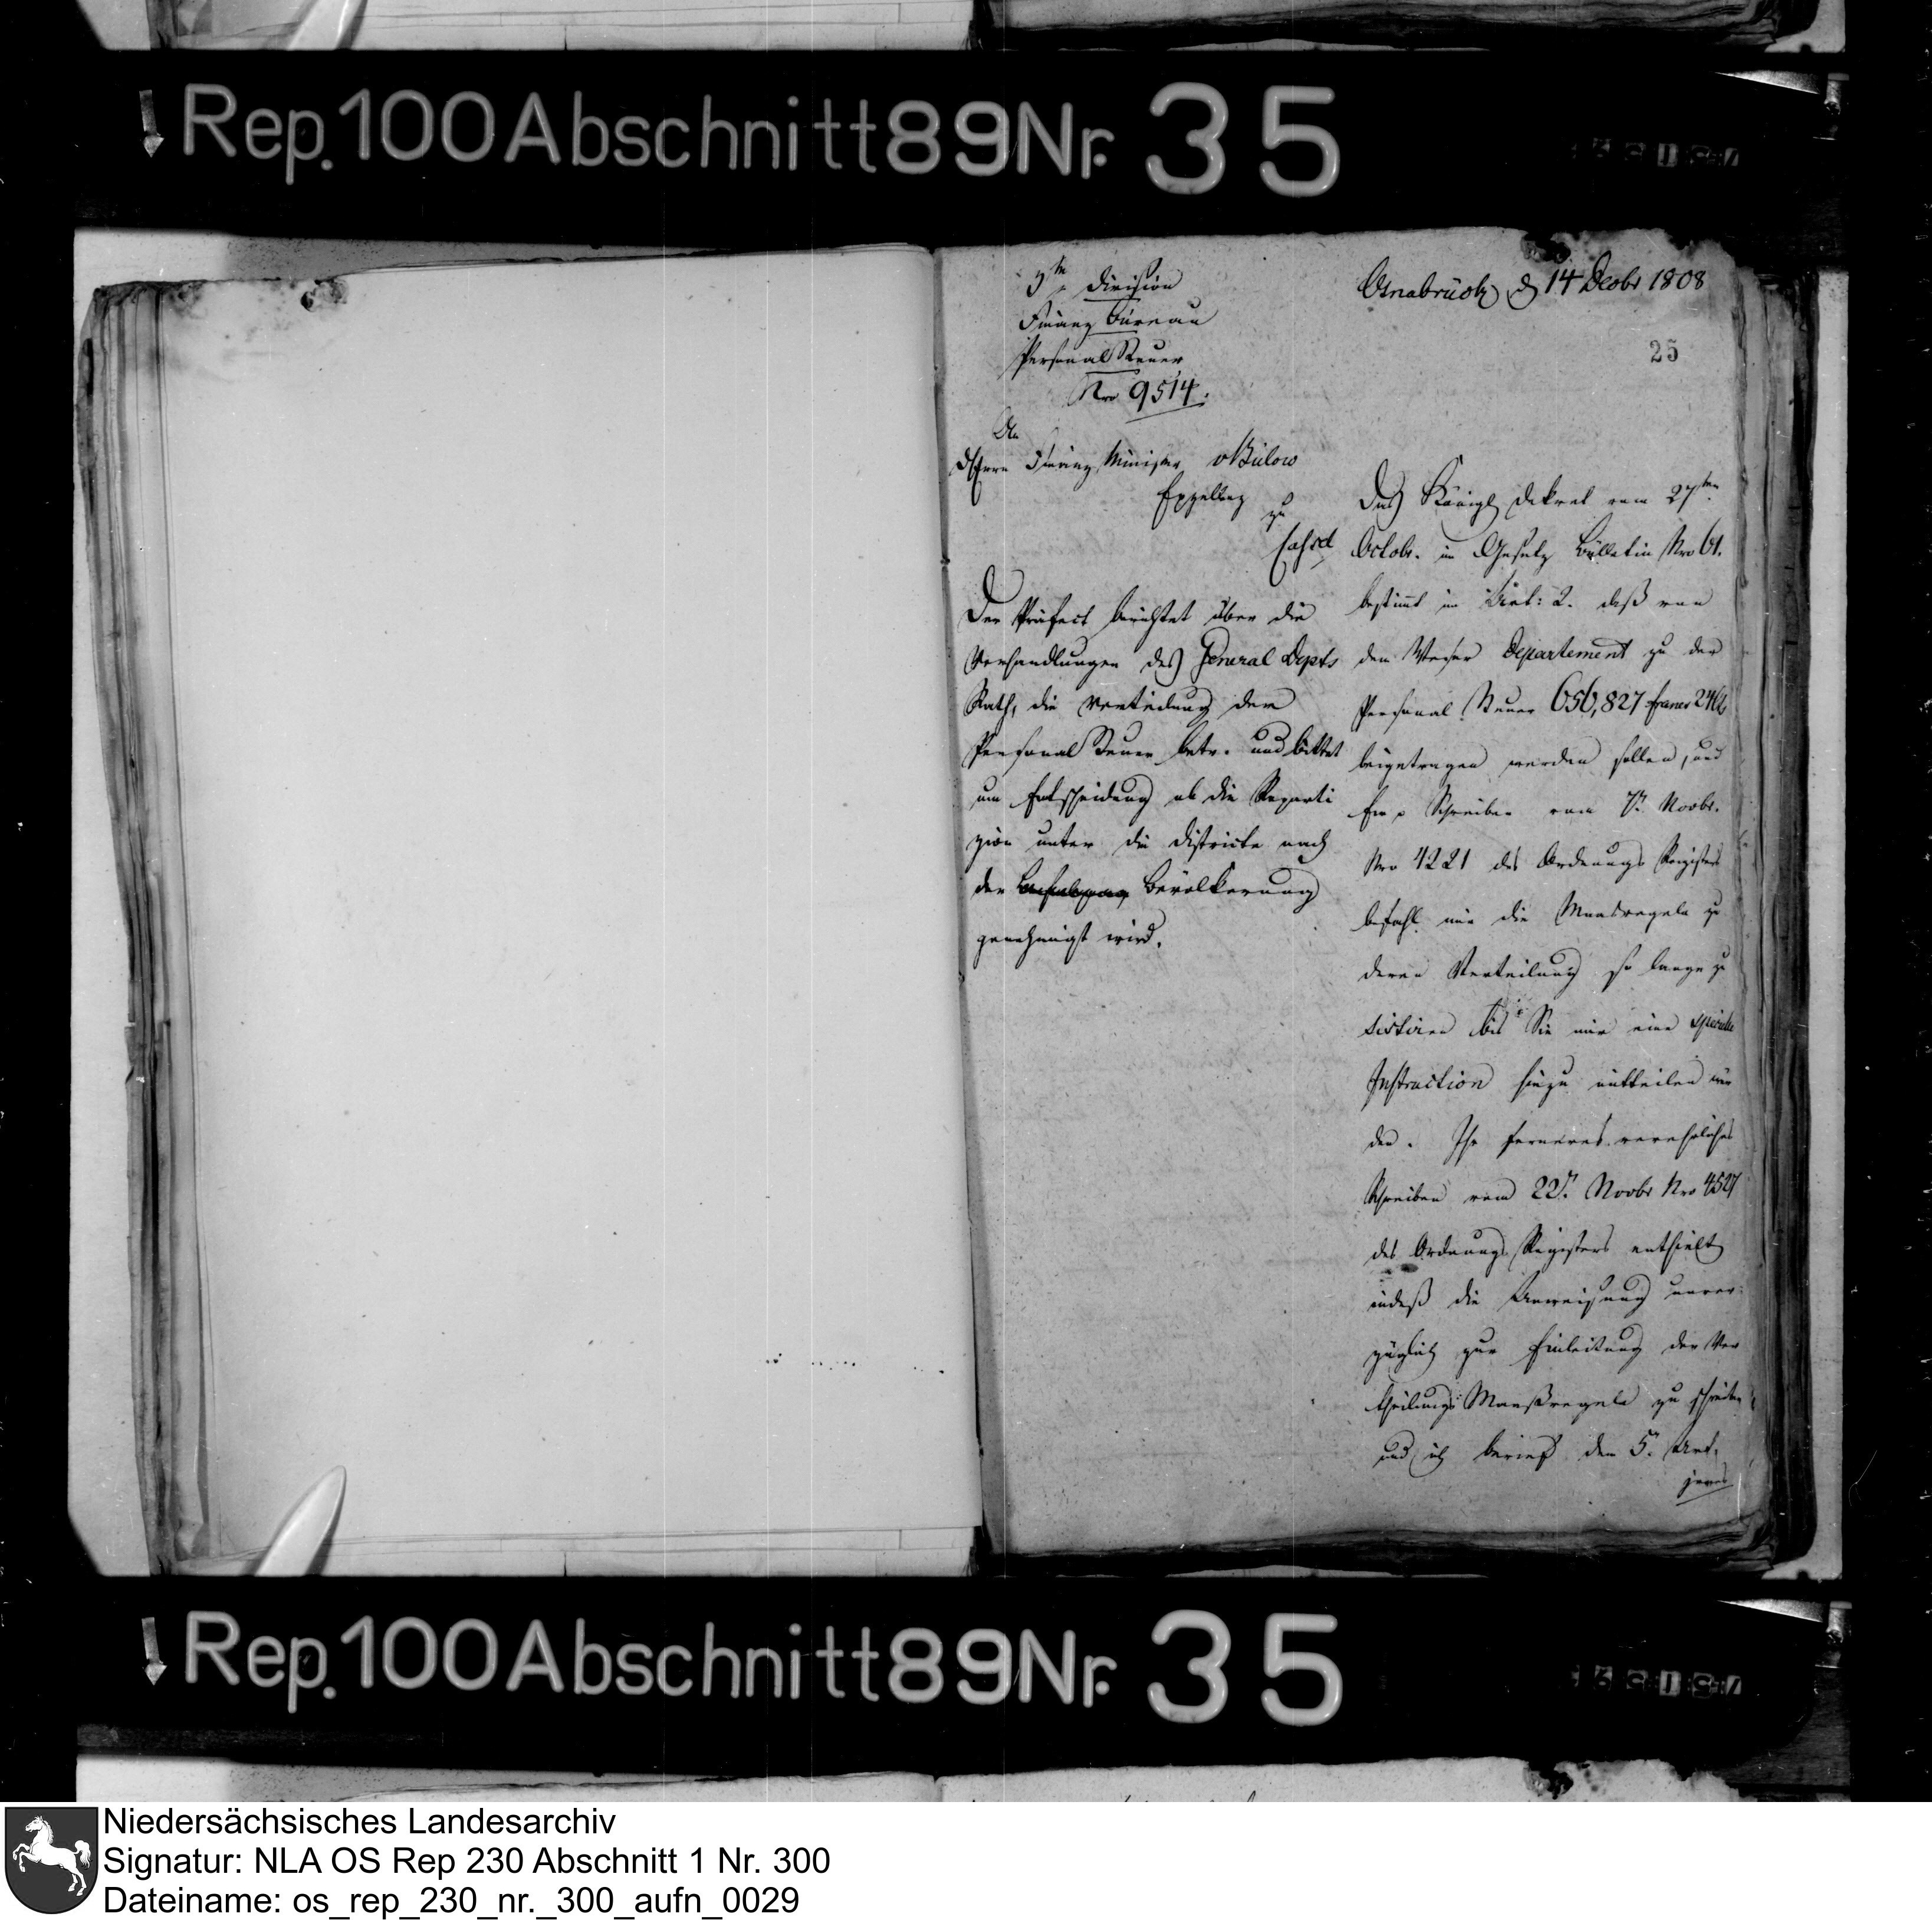 Rep. 100 Abschnitt 89 Nr. 35
3te Division
Finanz Büreau
Personal Steuer
Nro 9514.
Osnabrück d 14 Decbr 1808
25
An
dHerrn Finanz Minister v Bülow
Exzellenz
zu
Cassel
Der Präfect berichtet über die
Verhandlungen des General Depts
Rath, die Verteilung der
Personal Steuer betr. und bittet
um Entscheidung ob die Reparti
zion unter die Districte nach
der Bevölkerung
genehmigt wird.
Das Königl Dekret vom 27ten
Octobr. im Gesetz Bülletin Nro 61.
bestimmt im Art: 2. daß von
dem Weser Departement zu der
Personal Steuer 656,827 francs 24
beigetragen werden sollen, und
Schreiben vom 7n Novbr.
Nro 4221 des Ordnungs Registers
befahl mir die Maasregeln zu
deren Verteilung so lange zu
sistiren bis Sie mir eine specielle
Instruction hiezu mitteilen wür
den. Ihr ferneres verehrliches
Schreiben vom 22n. Novbr Nro 4527
des Ordnungs Registers enthielt
indeß die Anweisung unver
züglich zur Einleitung der Ver
theilungs Maaßregeln zu schreiten
und ich berief den 5n
jenes
Rep. 100 Abschnitt 89 Nr. 35
Niedersächsisches Landesarchiv
Signatur: NLA OS Rep 230 Abschnitt 1 Nr. 300
Dateiname: os_rep_230_nr._300_aufn_0029